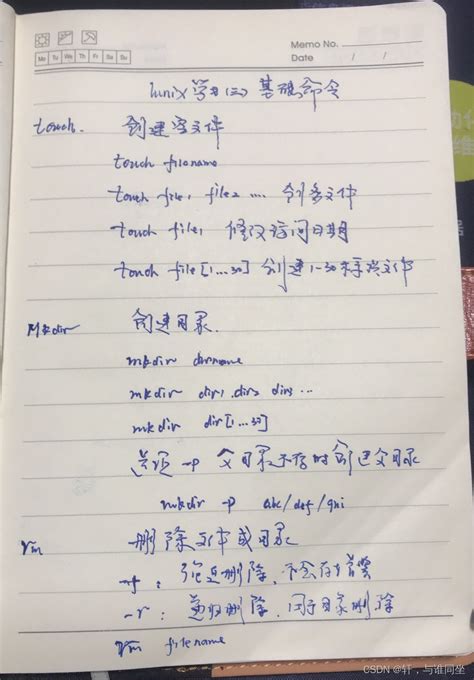 Memo No.
Mo Tu We Th Fr Sa Su
Date / /
lunix学习(二) 基础命令
touch. 创建空文件
touch filename
touch file1 file2 .... 创多文件
touch file1 修改访问日期
touch file[1...30] 创建1-30个文件
Mkdir 创建目录.
mkdir dirname
mkdir dir1 dir2 dir3 ...
mkdir dir[1...30]
选项 -p 父目录不存时创建父目录
mkdir -p abc/def/ghi
rm 删除文件或目录
-f : 强制删除,不会有告警
-r : 递归删除,用于目录删除
rm filename
CSDN @轩,与谁同坐